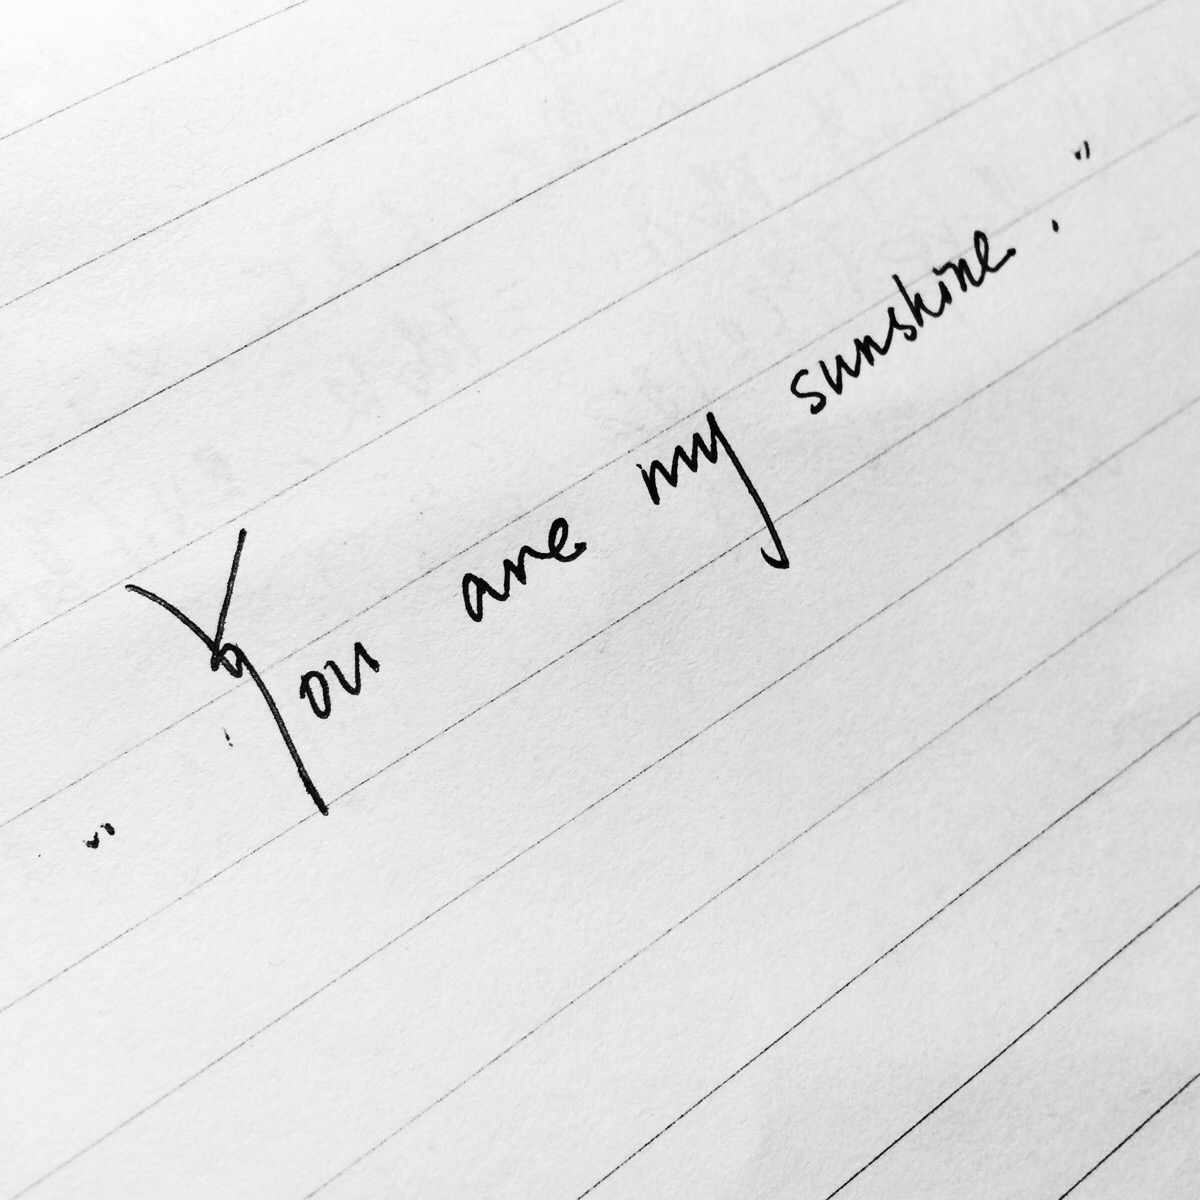 "You are my sunshine."